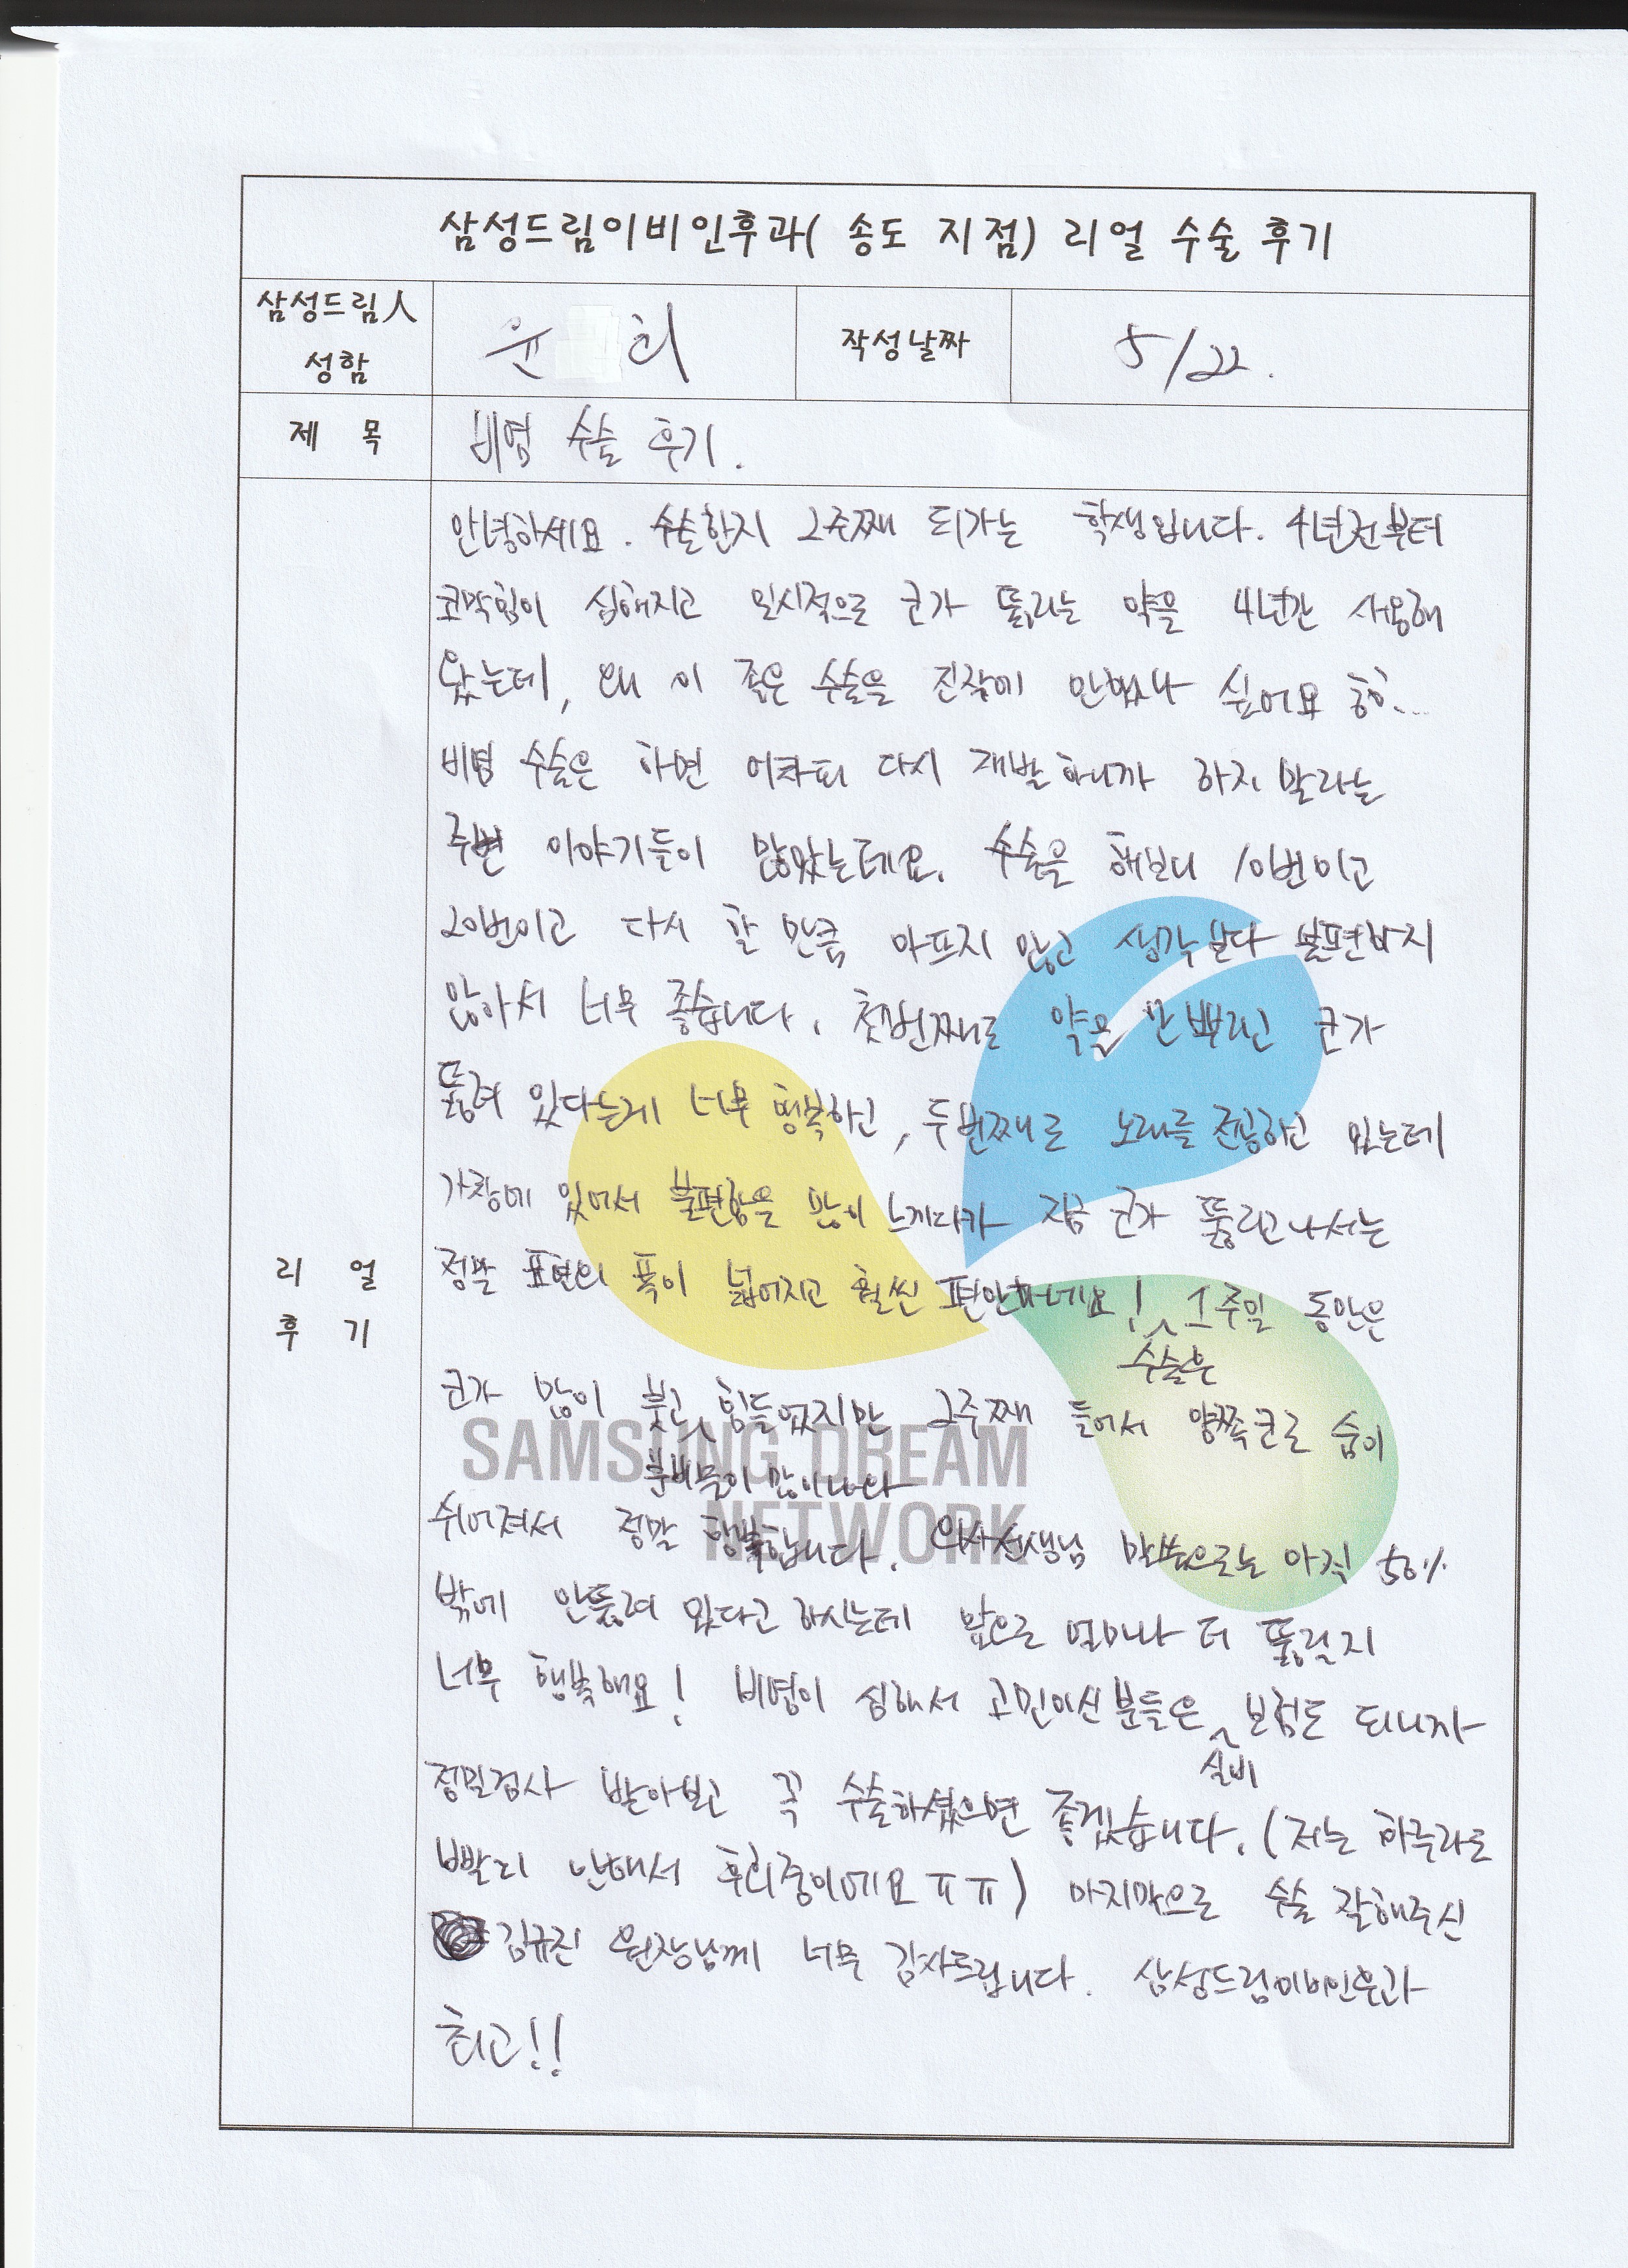 삼성드림이비인후과( 송도 지점) 리얼 수술 후기
삼성드림人
성함
윤 희
작성날짜
5/22.
제 목
비염 수술 후기.
리 얼
후 기
안녕하세요. 수술한지 2주째 되가는 학생입니다. 4년전부터
코막힘이 심해지고 일시적으로 코가 뚫리는 약을 4년간 사용해
왔는데, 왜 이 좋은 수술을 진작에 안했나 싶어요 흑흑...
비염 수술은 하면 어차피 다시 재발하니까 하지 말라는
주변 이야기들이 많았는데요. 수술을 해보니 10번이고
20번이고 다시 할 만큼 아프지 않고 생각보다 불편하지
않아서 너무 좋습니다. 첫번째로 약을 안 뿌리고 코가
뚫려 있다는게 너무 행복하고, 두번째로 노래를 전공하고 있는데
가창에 있어서 불편함을 많이 느끼다가 지금 코가 뚫리고나서는
정말 표현의 폭이 넓어지고 훨씬 편안하네요! 1주일 동안은
수술후
코가 많이 붓고 힘들었지만 2주째 들어서 양쪽코로 숨이
분비물이 많이나와
쉬어져서 정말 행복합니다. 의사선생님 말씀으로는 아직 50%
밖에 안뚫려 있다고 하시는데 앞으로 얼마나 더 뚫릴지
너무 행복해요! 비염이 심해서 고민이신분들은 보험도 되니까
실비
정밀검사 받아보고 꼭 수술하셨으면 좋겠습니다. (저는 하루라도
빨리 안해서 후회중이에요ㅠㅠ) 마지막으로 수술 잘해주신
김규진 원장님께 너무 감사드립니다. 삼성드림이비인후과
최고!!
SAMSUNG DREAM
NETWORK